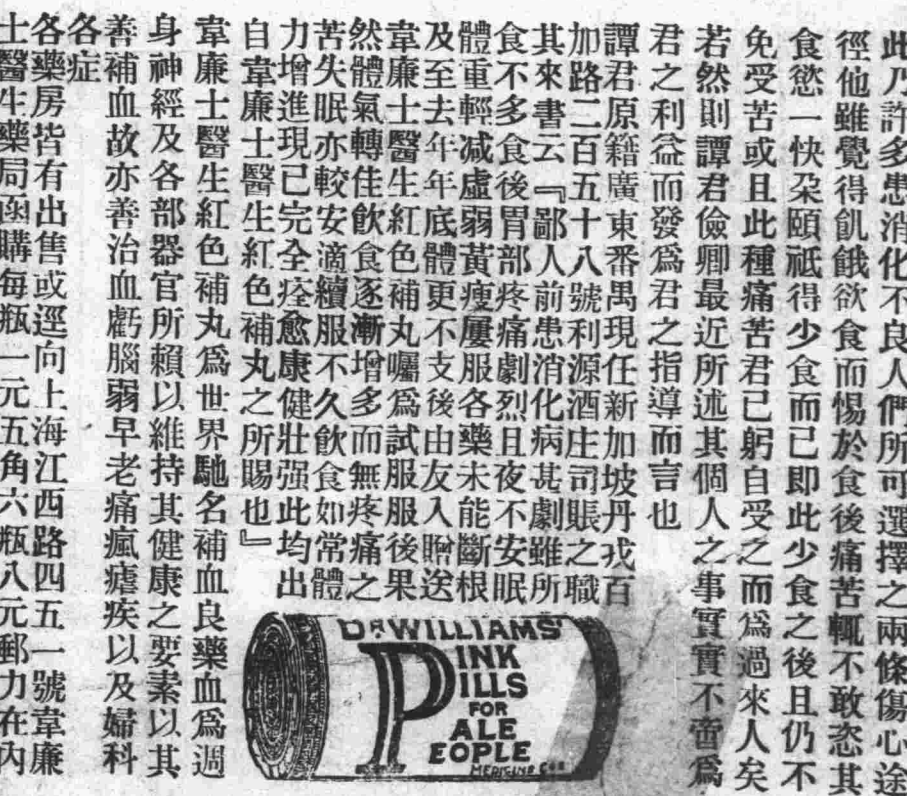 此乃許多患消化不良人們所可選擇之兩條傷心途
徑他雖覺得飢餓欲食而惕於食後痛苦輒不敢恣其
食慾一快朶頤祇得少食而已即此少食之後且仍不
免受苦或且此種痛苦君已躬自受之而爲過來人矣
若然則譚君儉卿最近所述其個人之事實實不啻爲
君之利益而發爲君之指導而言也
譚君原籍廣東番禺現任新加坡丹戎百
加路二百五十八號利源酒庄司賬之職
其來書云『鄙人前患消化病甚劇雖所
食不多食後胃部疼痛劇烈且夜不安眠
體重輕減虛弱黃瘦屢服各藥未能斷根
及至去年年底體更不支後由友入贈送
韋廉士醫生紅色補丸囑爲試服服後果
然體氣轉佳飲食逐漸增多而無疼痛之
苦失眠亦較安適續服不久飲食如常體
力增進現已完全痊愈康健壯强此均出
自韋廉士醫生紅色補丸之所賜也』
韋廉士醫生紅色補丸爲世界馳名補血良藥血爲週
身神經及各部器官所賴以維持其健康之要素以其
善補血故亦善治血虧腦弱早老痛瘋瘧疾以及婦科
各症
各藥房皆有出售或逕向上海江西路四五一號韋廉
士醫生藥局函購每瓶一元五角六瓶八元郵力在內
DR WILLIAMS'
PINK
PILLS
FOR
PALE
PEOPLE
MEDICINE